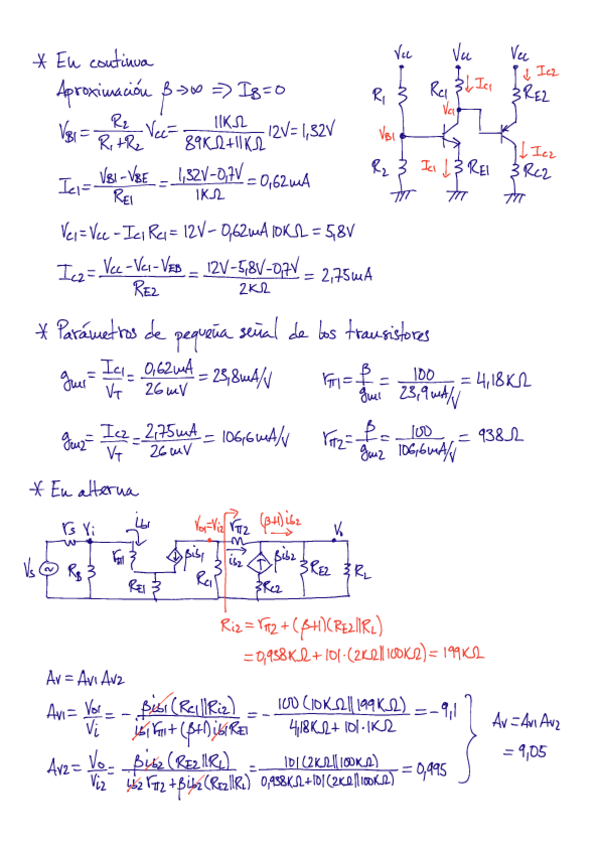 * En continua
Aproximación β→∞ ⇒ IB=0
VB1 = R2/(R1+R2) VCC = 11KΩ/(89KΩ+11KΩ) 12V = 1,32V
IC1 = (VB1-VBE)/RE1 = (1,32V-0,7V)/1KΩ = 0,62mA
VC1 = VCC - IC1 RC1 = 12V - 0,62mA 10KΩ = 5,8V
IC2 = (VCC-VC1-VEB)/RE2 = (12V-5,8V-0,7V)/2KΩ = 2,75mA
VCC VCC VCC
R1 RC1 IC1 IC2 RE2
VC1
VB1
R2 IC1 RE1 IC2 RC2
* Parámetros de pequeña señal de los transistores
gm1 = IC1/VT = 0,62mA/26mV = 23,8mA/V rπ1 = β/gm1 = 100/(23,9mA/V) = 4,18KΩ
gm2 = IC2/VT = 2,75mA/26mV = 106,6mA/V rπ2 = β/gm2 = 100/(106,6mA/V) = 938Ω
* En alterna
rs Vi ib1 Vo1=Vi2 rπ2 (β+1)ib2 Vo
Vs RB rπ1 RE1 βib1 RC1 ib2 βib2 RC2 RE2 RL
Ri2 = rπ2 + (β+1)(RE2||RL)
= 0,938KΩ + 101·(2KΩ||100KΩ) = 199KΩ
AV = AV1 AV2
AV1 = Vo1/Vi = - βib1(RC1||Ri2)/(ib1 rπ1+(β+1)ib1 RE1) = - 100(10KΩ||199KΩ)/(4,18KΩ+101·1KΩ) = -9,1
AV2 = Vo/Vi2 = βib2(RE2||RL)/(ib2 rπ2+βib2(RE2||RL)) = 101(2KΩ||100KΩ)/(0,938KΩ+101(2KΩ||100KΩ)) = 0,995
AV = AV1 AV2
= 9,05